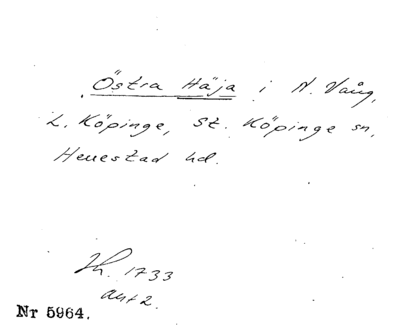 Östra Häja i N. Vång,
L. Köpinge, St. Köpinge sn,
Herrestad hd.
Lh. 1733
akt 2.
Nr 5964.